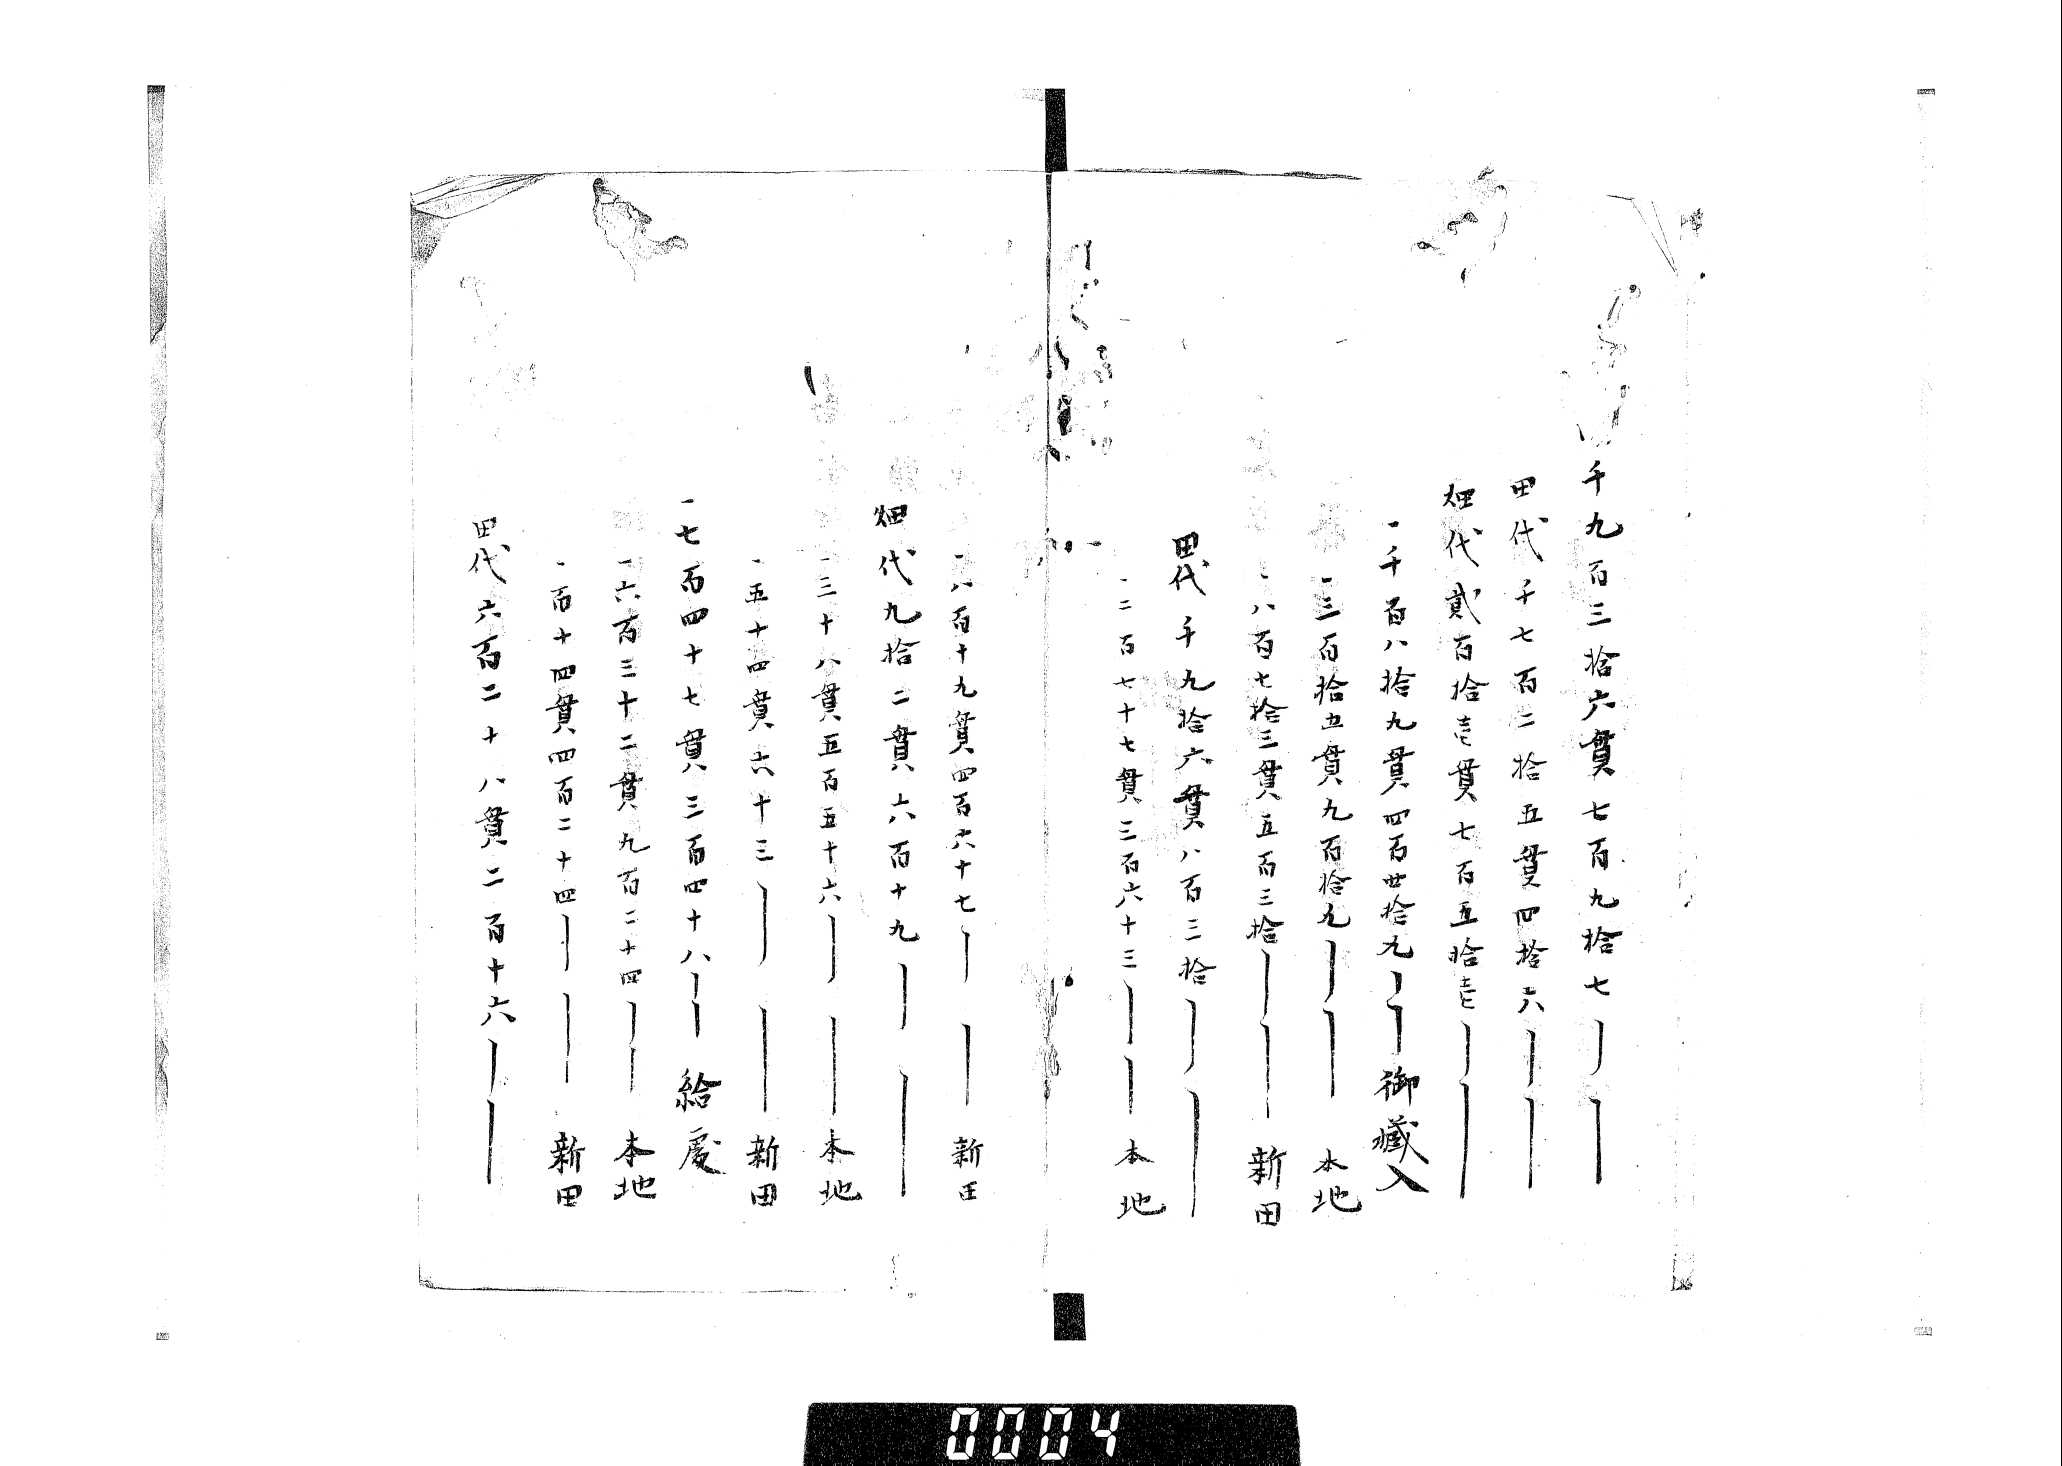 千九百三拾六貫七百九拾七
田代千七百二拾五貫四拾六
畑代貳百拾壱貫七百五拾壱
一千百八拾九貫四百卅拾九 御藏入
一三百拾五貫九百拾九 本地
一八百七拾三貫五百三拾 新田
田代千九拾六貫八百三拾
一二百七十七貫三百六十三 本地
一八百十九貫四百六十七 新田
畑代九拾二貫六百十九
一三十八貫五百五十六 本地
一五十四貫六十三 新田
一七百四十七貫三百四十八 給
一六百三十二貫九百二十四 本地
一百十四貫四百二十四 新田
田代六百二十八貫二百十六
0004